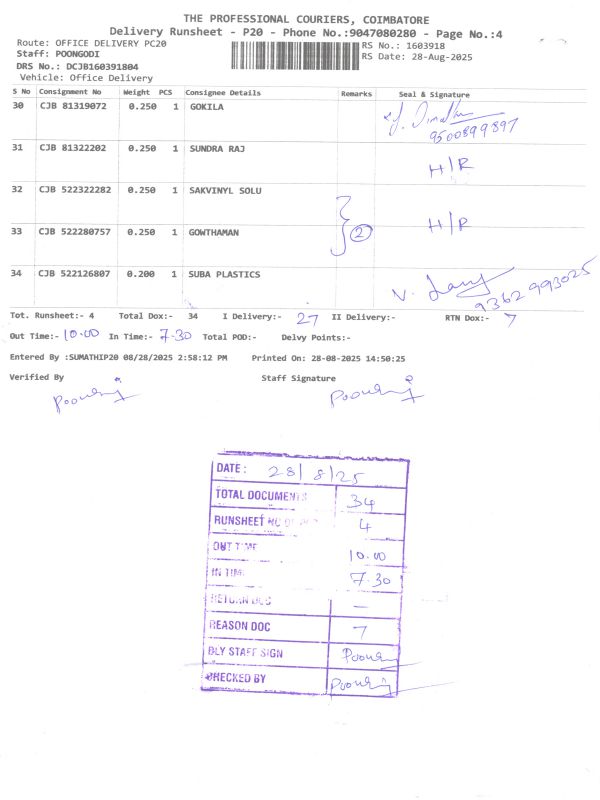 THE PROFESSIONAL COURIERS, COIMBATORE
Delivery Runsheet - P20 - Phone No.:9047080280 - Page No.:4
Route: OFFICE DELIVERY PC20 RS No.: 1603918
Staff: POONGODI RS Date: 28-Aug-2025
DRS No.: DCJB160391804
Vehicle: Office Delivery
S No Consignment No Weight PCS Consignee Details Remarks Seal & Signature
30 CJB 81319072 0.250 1 GOKILA
9500899897
31 CJB 81322202 0.250 1 SUNDRA RAJ H/R
32 CJB 522322282 0.250 1 SAKVINYL SOLU
2 H/R
33 CJB 522280757 0.250 1 GOWTHAMAN
34 CJB 522126807 0.200 1 SUBA PLASTICS
9362993025
Tot. Runsheet:- 4 Total Dox:- 34 I Delivery:- 27 II Delivery:- RTN Dox:- 7
Out Time:- 10.00 In Time:- 7.30 Total POD:- Delvy Points:-
Entered By :SUMATHIP20 08/28/2025 2:58:12 PM Printed On: 28-08-2025 14:50:25
Verified By Staff Signature
DATE : 28/8/25
TOTAL DOCUMENTS 34
RUNSHEET 4
OUT TIME 10.00
IN TIME 7.30
RETURN DOC —
REASON DOC 7
DLY STAFF SIGN
CHECKED BY